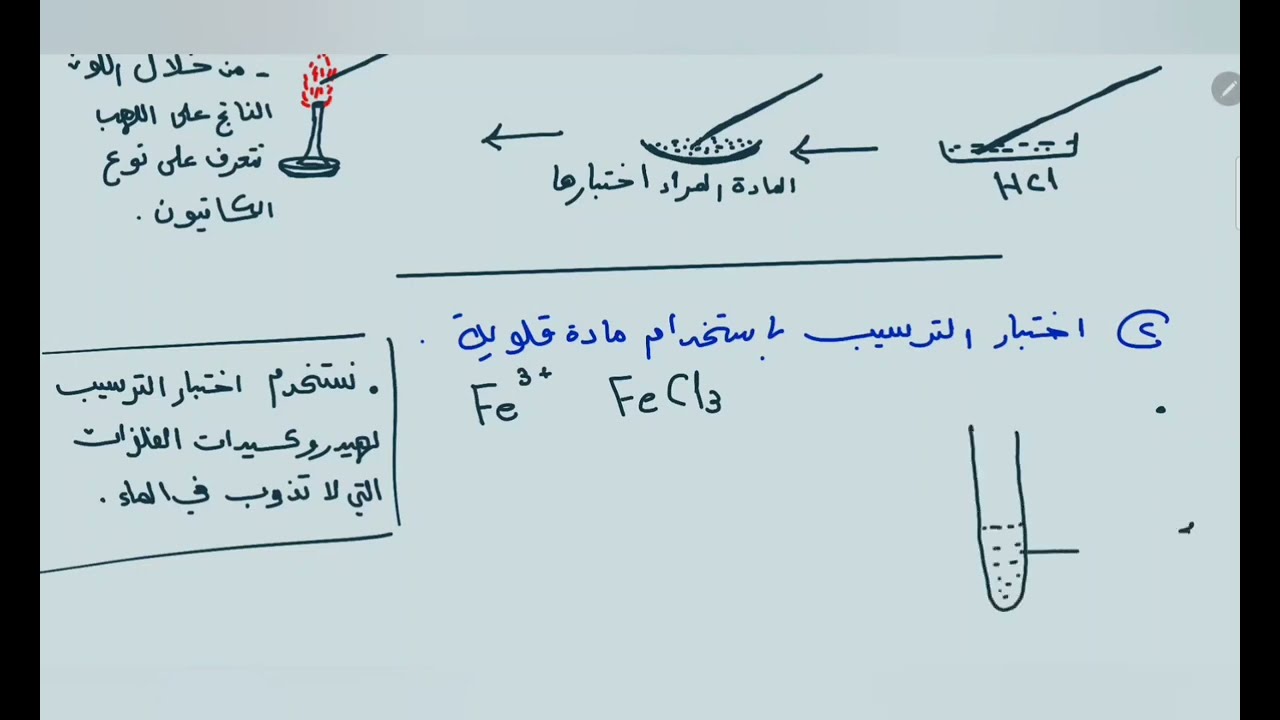 - من خلال اللون
الناتج على اللهب
نتعرف على نوع
الكاتيون .
HCl
المادة المراد اختبارها
2 اختبار الترسيب باستخدام مادة قلوية .
Fe³⁺ FeCl₃
. نستخدم اختبار الترسيب
لهيدروكسيدات الفلزات
التي لا تذوب في الماء .